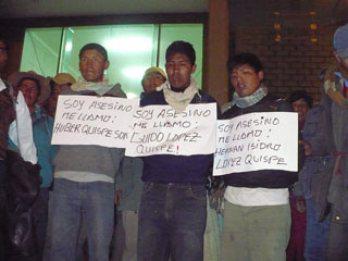 SOY ASESINO
ME LLAMO:
HUBER QUISPE SOK
SOY ASESINO
ME LLAMO:
GUIDO LOPEZ
QUISPE!
SOY ASESINO
ME LLAMO:
HERNAN ISIDRO
LOPEZ QUISPE